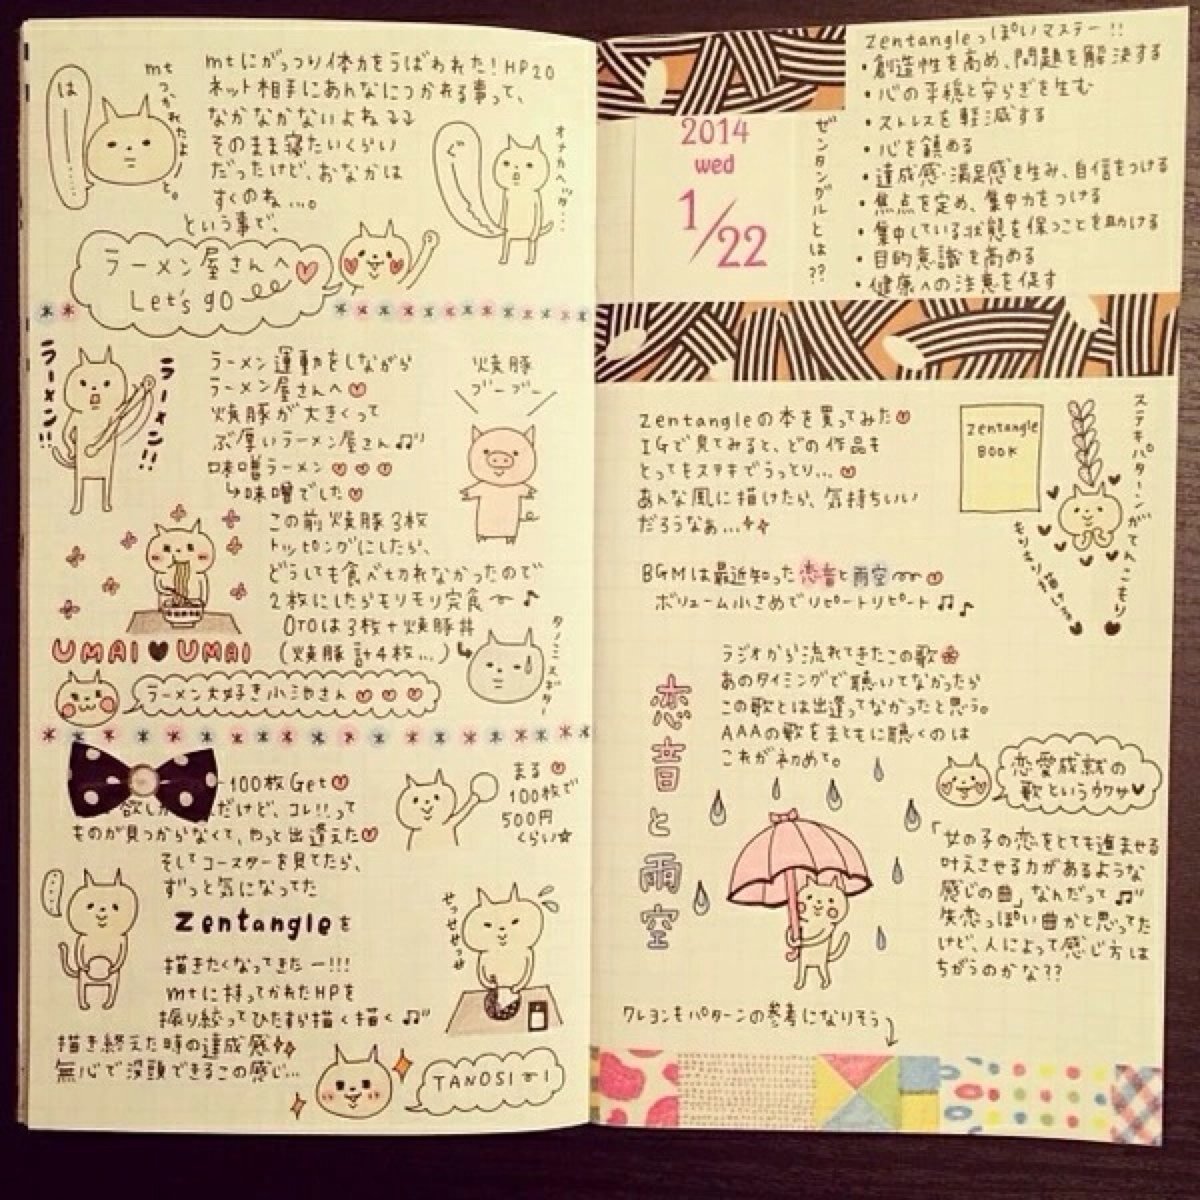 mtにがっつり体力をうばわれた！HP20
ネット相手にあんなにつかれる事って、
なかなかないよねるる
そのまま寝たいくらい
だったけど、おなかは
すくのね…。
という事で、
は
mt
つ、かれたよーと。
ぐ
オナカヘッタ…
ラーメン屋さんへ
Let's go
ラーメン!!
ラーメン!!
ラーメン運動をしながら
ラーメン屋さんへ
焼豚が大きくって
ぶ厚いラーメン屋さん♫
味噌ラーメン
↳味噌でした
焼豚
ブーブー
この前焼豚3枚
トッピングにしたら、
どうしても食べ切れなかったので
2枚にしたらモリモリ完食〜♪
OTOは3枚+焼豚丼
(焼豚計4枚…)
UMAI♥UMAI
ラーメン大好き小池さん
100枚Get
だけど、コレ!!って
ものが見つからなくて、やっと出逢えた
まる
100枚で
500円
くらい☆
そしてコースターを見てたら、
ずっと気になってた
zentangleを
描きたくなってきたー!!!
mtに持ってかれたHPを
振り絞ってひたすら描く描く♫
描き終えた時の達成感
無心で没頭できるこの感じ…
せっせっせっ
TANOSI〜！
2014
wed
1/22
ゼンタングルとは??
zentangleっぽいマステー!!
・創造性を高め、問題を解決する
・心の平穏と安らぎを生む
・ストレスを軽減する
・心を鎮める
・達成感・満足感を生み、自信をつける
・焦点を定め、集中力をつける
・集中している状態を保つことを助ける
・目的意識を高める
・健康への注意を促す
zentangleの本を買ってみた
IGで見てみると、どの作品も
とってもステキでうっとり…
あんな風に描けたら、気持ちいい
だろうなぁ…
zentangle
BOOK
ステキパターンがてんこもり
BGMは最近知った恋音と雨空〜
ボリューム小さめでリピートリピート♫♪
恋音と雨空
ラジオから流れてきたこの歌
あのタイミングで聴いてなかったら
この歌とは出逢ってなかったと思う。
AAAの歌をまともに聴くのは
これが初めて。
恋愛成就の
歌というウワサ♥
「女の子の恋をとても進ませる
叶えさせる力があるような
感じの曲」なんだって♫
失恋っぽい曲かと思ってた
けど、人によって感じ方は
ちがうのかな??
クレヨンもパターンの参考になりそう